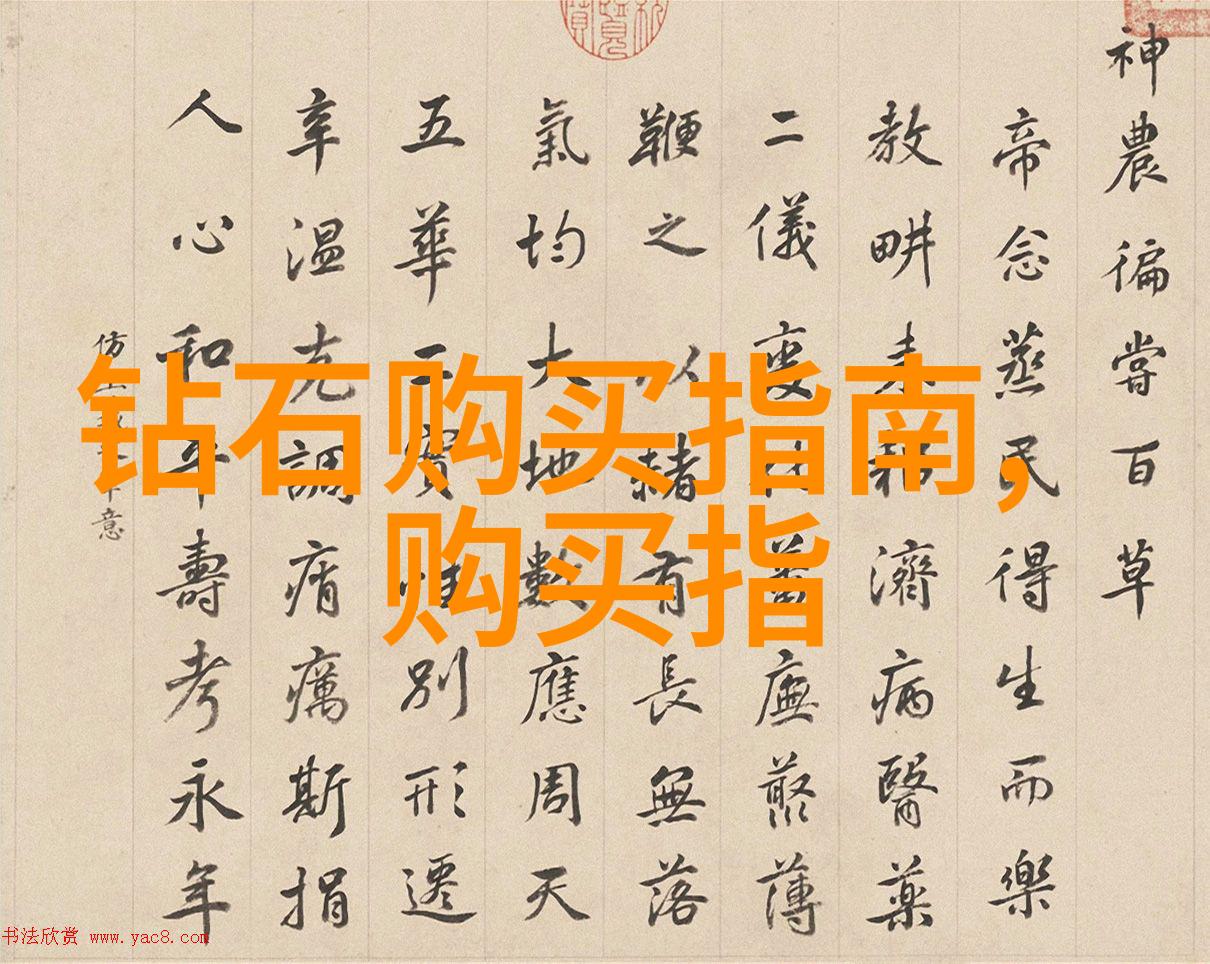 钻石购买指南,
购买指
神農徧嘗百草
帝念蒸民得生而樂
教畊耒耜濟病醫藥
二儀變蕃廡藂薄
鞭之以赭有長無落
氣均大地數應周天
五華實別形遷
辛溫克調痟癘斯捐
人心和平壽考永年
仿意
书法欣赏 www.yac8.com